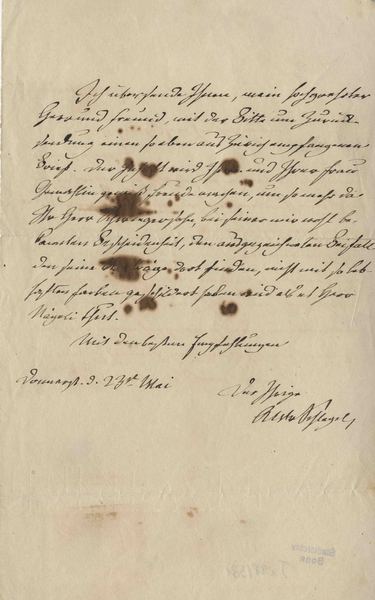 Ich übersende Ihnen, mein hochgeehrter
Herr und Freund, mit der Bitte um Zurück-
sendung einen so eben aus Zürich empfangenen
Brief. Der Inhalt wird Ihnen und Ihrer Frau
Gemahlin gewiß Freude machen, um so mehr da
Ihr Herr, bei seiner mir wohl be-
kannten Bescheidenheit, den ausgezeichneten Beifall
den seine Vorträge dort finden, nicht mit so leb-
haften Farben geschildert haben wird als es Herr
Nägeli thut.
Mit den besten Empfehlungen
Donnerst. d. 23st Mai
Der Ihrige
Schlegel
Stadtarchiv
Bonn